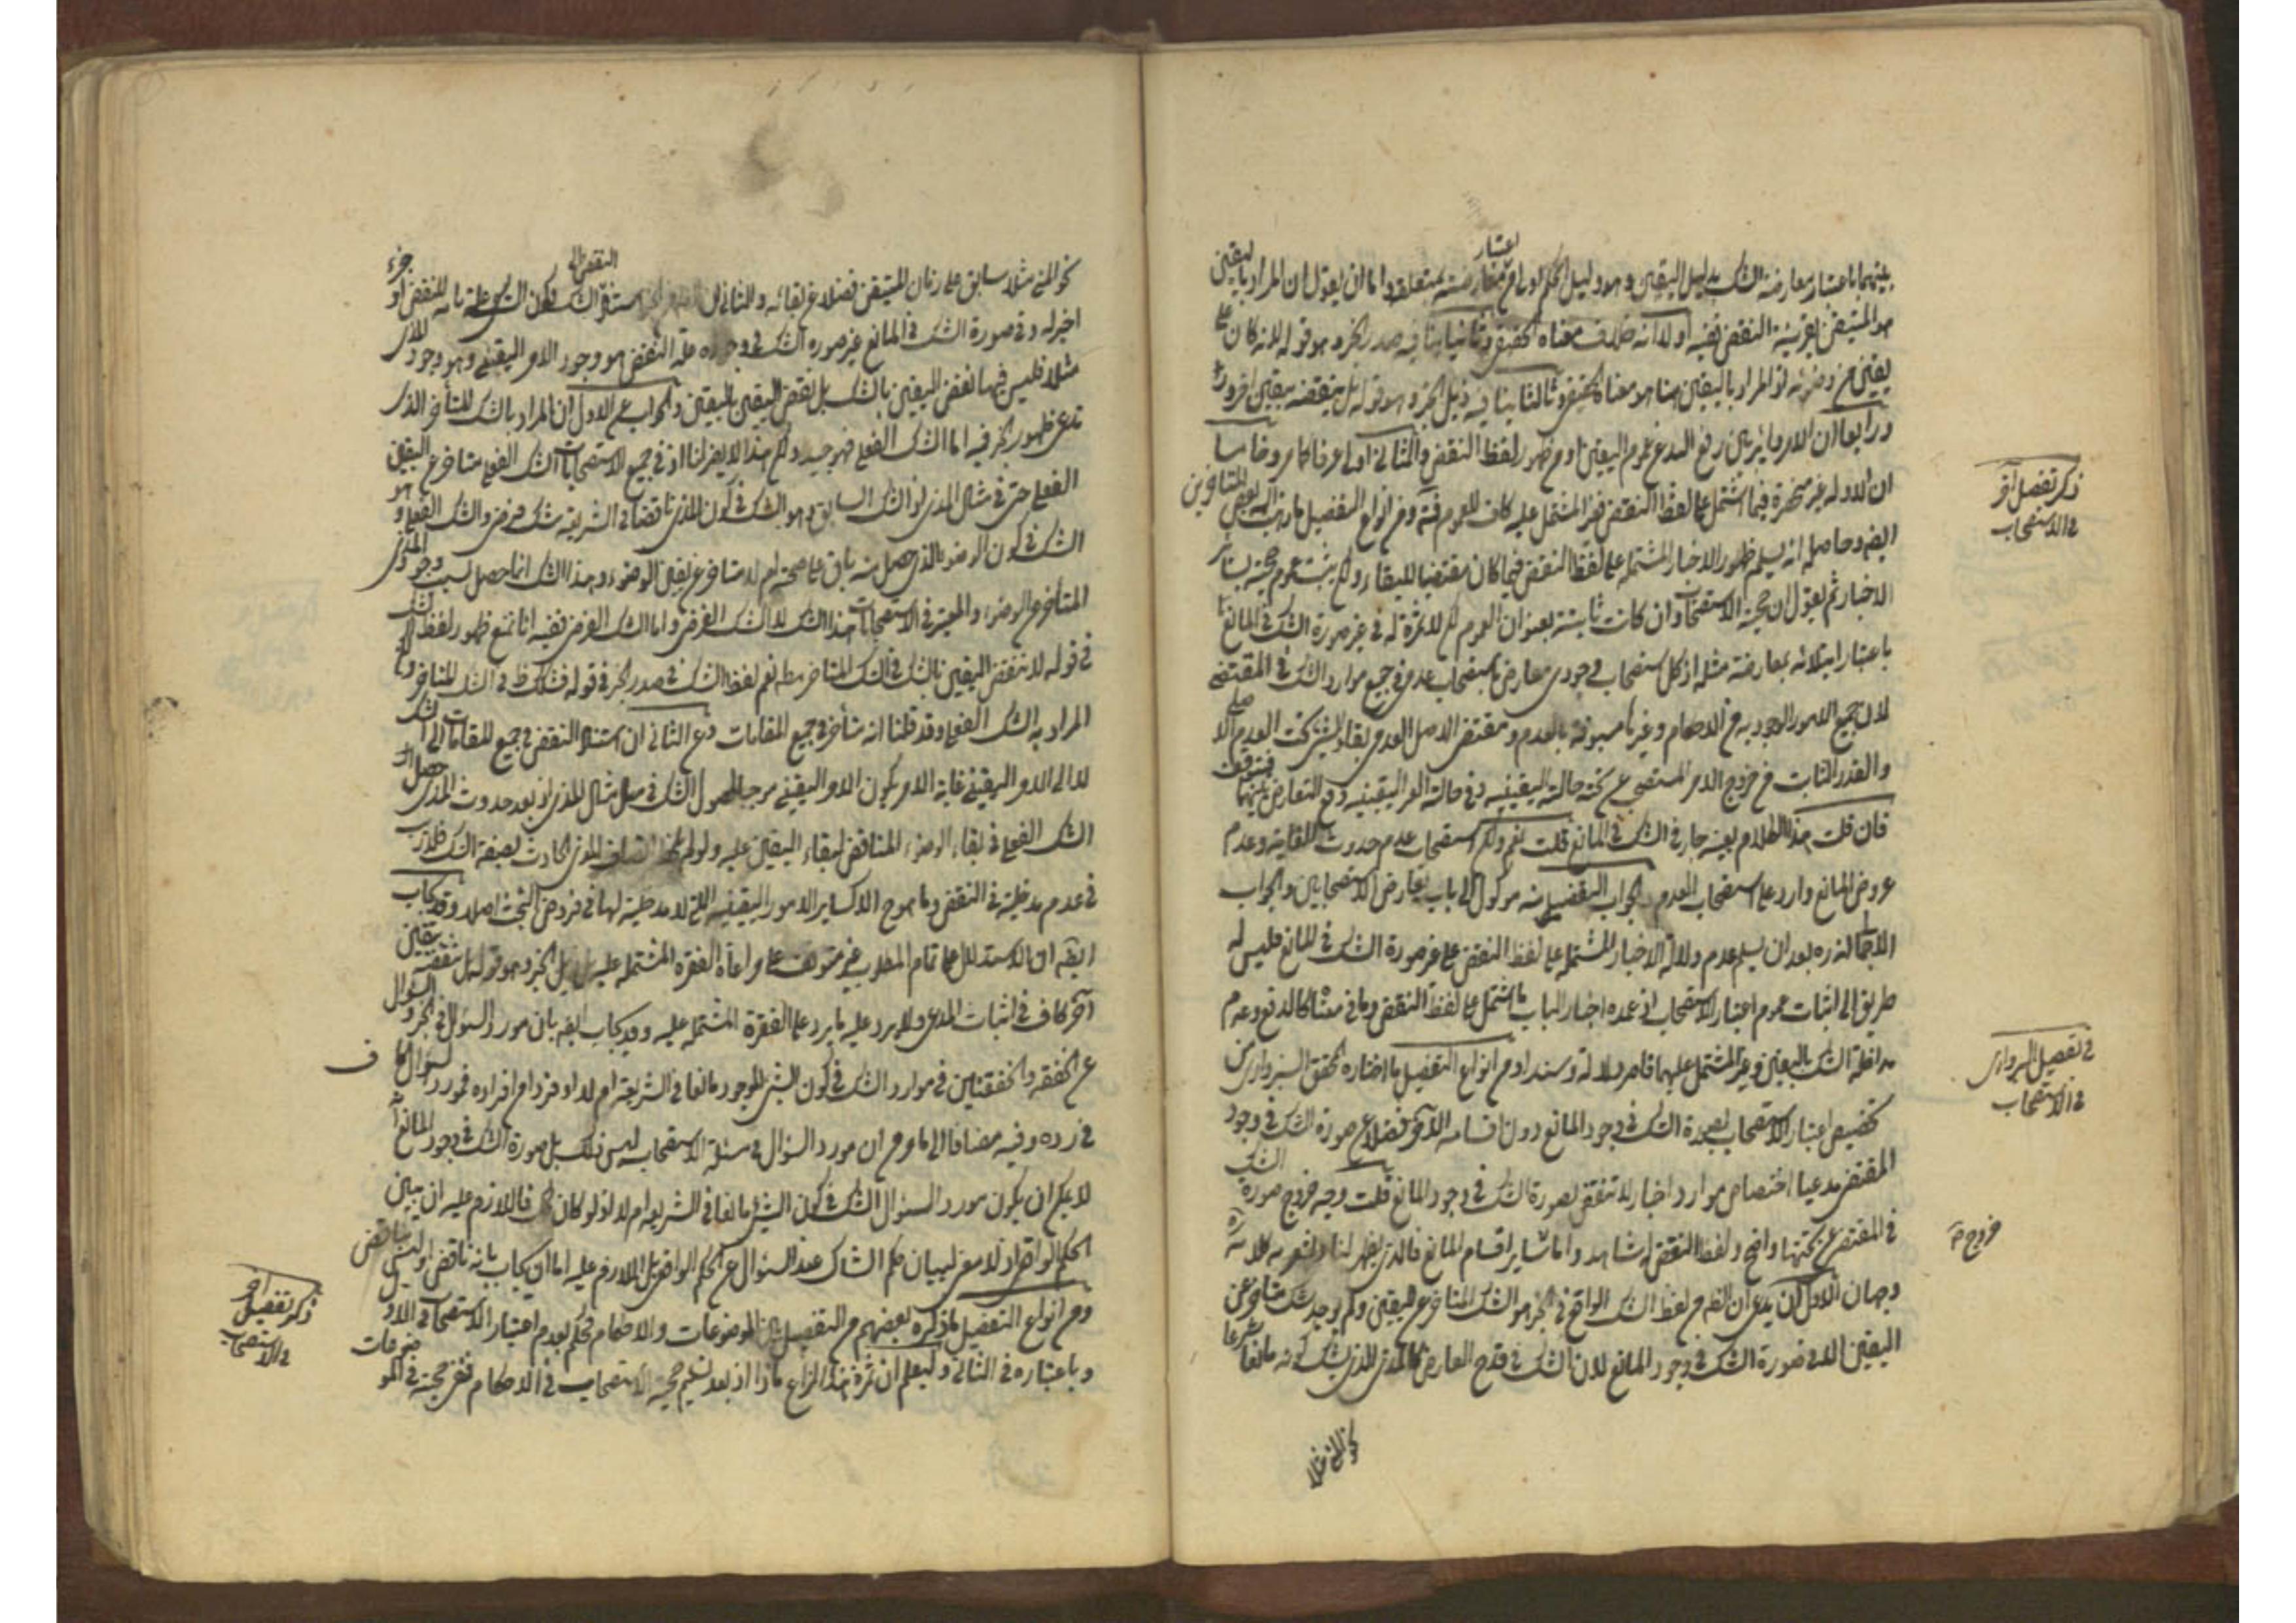 بينهما باعتبار معارضة الشك بدليل اليقين وهو دليل الحكم الاولى باعتبار معارضته بمتعلقه واما ان يقول ان المراد باليقين
هو المتيقن بقرينة النقض نفيه اولا انه خلاف معناه الحقيقى وثانيا ينافيه صدر الخبر وهو قوله لانه كان على
يقين من وضوئه اذ المراد باليقين هنا هو معناه الحقيقى وثالثا ينافيه ذيل الخبر وهو قوله بل ينقضه بيقين اخر
ورابعا ان الامر دائر بين رفع اليد عن عموم اليقين او من ظهور لفظ النقض والثانى اولى عرفا كما مر وخامسا
ان الادلة غير منحصرة فيما اشتمل على لفظ النقض فغير المشتمل عليه كاف للعموم ومن انواع التفصيل ما ذهب اليه بعض المتاخرين
ايضا وحاصله انه يسلم ظهور الاخبار المشتملة على لفظ النقض فيما كان مقتضيا للبقاء ولكن يثبت عموم حجيته بسائر
الاخبار ثم يقول ان حجية الاستصحاب وان كانت ثابتة بعنوان العموم لكن لا ثمرة له فى غير صورة الشك فى المانع
باعتبار ابتلائه بمعارضة مثله اذ كل استصحاب وجودى معارض باستصحاب عدمى فى جميع موارد الشك فى المقتضى
لان جميع الامور الوجودية من الاحكام وغيرها مسبوقة بالعدم ومقتضى الاصل العدمى بقاء الشىء تحت العدم الاصلى
والقدر الثابت من خروج الامر المستصحب عن تحته حالته اليقينية وفى حالته الغير اليقينية وقع التعارض بينهما فيتوقف
فان قلت هذا الكلام بعينه جار فى الشك فى المانع قلت نعم ولكن استصحاب عدم حدوث الغاية وعدم
عروض المانع وارد على استصحاب العدم والجواب التفصيلى منه موكول الى باب تعارض الاستصحابين والجواب
الاجمالى انه بعد ان يسلم عدم دلالة الاخبار المشتملة على لفظ النقض على غير صورة الشك فى المانع فليس له
طريق الى اثبات عموم اعتبار الاستصحاب اذ عمدة اخبار الباب ما اشتمل على لفظ النقض وما فى معناه كالدفع وعدم
مداخلة الشك باليقين وغير المشتمل عليهما قاصر دلالة وسندا ومن انواع التفصيل ما اختاره المحقق السبزوارى من
تخصيص اعتبار الاستصحاب بصورة الشك فى وجود المانع دون اقسامه الاخر فضلا عن صورة الشك فى وجود
المقتضى مدعيا اختصاص موارد اخبار لا تنقض بصورة الشك فى وجود المانع قلت وجه خروج صورة الشك
فى المقتضى عن تحتها واضح ولفظ النقض له شاهد واما سائر اقسام المانع فالذى يظهر لنا وليشعر به كلامه ره
وجهان الاول ان يدعى ان الظاهر من لفظ الشك الواقع فى الخبر هو الشك المتاخر عن اليقين ولم يوجد شك متاخر عن
اليقين الا فى صورة الشك فى وجود المانع لان الشك فى قدح العارض كالمذى للذى يشك كونه مانعا شرعا
ذكر تفصيل آخر
فى الاستصحاب
فى تفصيل السبزوارى
فى الاستصحاب
خروج
كون المذى مثلا سابق على زمان المتيقن فضلا عن بقائه والثانى ان النقض الى الشك فيكون الشك علة تامة للنقض او جزء
اخير له وفى صورة الشك فى المانع غير صورة الشك فى وجوده علة النقض هو وجود الامر اليقينى وهو وجود المذى
مثلا فليس فيها نقض اليقين بالشك بل نقض اليقين باليقين والجواب عن الاول ان المراد بالشك المتاخر الذى
تدعى ظهور الخبر فيه اما الشك الفعلى فهو جيد ولكن هذا لا يضر لنا اذ فى جميع الاستصحابات الشك الفعلى متاخر عن اليقين
الفعلى حتى فى مثال المذى اذ الشك السابق هو الشك فى كون المذى ناقضا فى الشريعة شك فرضى والشك الفعلى هو
الشك فى كون الوضوء الذى حصل منه باق على صحته ام لا متاخر عن يقين الوضوء وهذا الشك انما حصل بسبب وجود المذى
المتاخر عن الوضوء والمعتبر فى الاستصحابات هذا الشك لا الشك الفرضى واما الشك الفرضى نفيه انا نمنع ظهور لفظ الشك
فى قوله لا تنقض اليقين بالشك فى الشك المتاخر مطلقا نعم لفظ الشك فى صدر الخبر فى قوله فشككت ظاهر فى الشك المتاخر
المراد به الشك الفعلى وقد قلنا انه متاخر فى جميع المقامات وعن الثانى ان استناد النقض فى جميع المقامات الى الشك
لا الى الامر اليقينى غاية الامر يكون الامر اليقينى موجبا لحصول الشك فى مثل مثال المذى اذ بعد حدوث المذى حصل
الشك الفعلى فى بقاء الوضوء المناقض لبقاء اليقين عليه ولو لم المذى الحادث بصفة الشك فلا ريب
فى عدم مدخليته فى النقض وما هو ح الا كسائر الامور اليقينية التى لا مدخلية لها فى فروض البحث اصلا وقد يجاب
ايضا ان الاستدلال على تمام المطلوب غير متوقف على مراعاة الفقرة المشتملة عليه ذيل الخبر وهو قوله بل تنقضه بيقين
آخر كاف فى اثبات المدعى ولا يرد عليه ما يرد على الفقرة المشتملة عليه وقد يجاب ايضا بان مورد السؤال فى الخبر السؤال
عن الخفقة والخفقتين فى موارد الشك فى كون الشىء الموجود مانعا فى الشريعة ام لا او فردا من افراده فمورد السؤال كاف
فى رده وفيه مضافا الى ما مر من ان مورد السؤال فى مسئلة الاستصحاب ليس ذلك بل صورة الشك فى وجود المانع
لا يمكن ان يكون مورد السؤال الشك فى كون الشىء مانعا فى الشريعة ام لا اذ لو كان كك فاللازم عليه ان يبين
الحكم الواقعى اذ لا معنى لبيان حكم الشاك عند السؤال عن الحكم الواقعى بل اللازم عليه اما ان يجاب بانه ناقض او ليس بناقض
ومن انواع التفصيل ما ذكره بعضهم من التفصيل بين الموضوعات والاحكام فحكم بعدم اعتبار الاستصحاب فى الاول
وباعتباره فى الثانى وليعلم ان ثمرة هذا النزاع ماذا اذ بعد تسليم حجية الاستصحاب فى الاحكام فنفى حجيته فى الموضوعات
ذكر تفصيل آخر
فى الاستصحاب